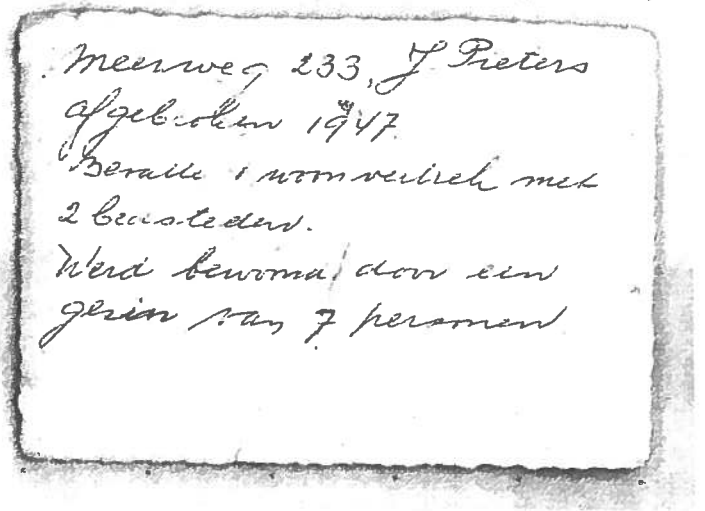 Meerweg 233, J Pieters
afgebroken 1947
Bevatte 1 woonvertrek met
2 bedsteden.
Werd bewoond door een
gezin van 7 personen